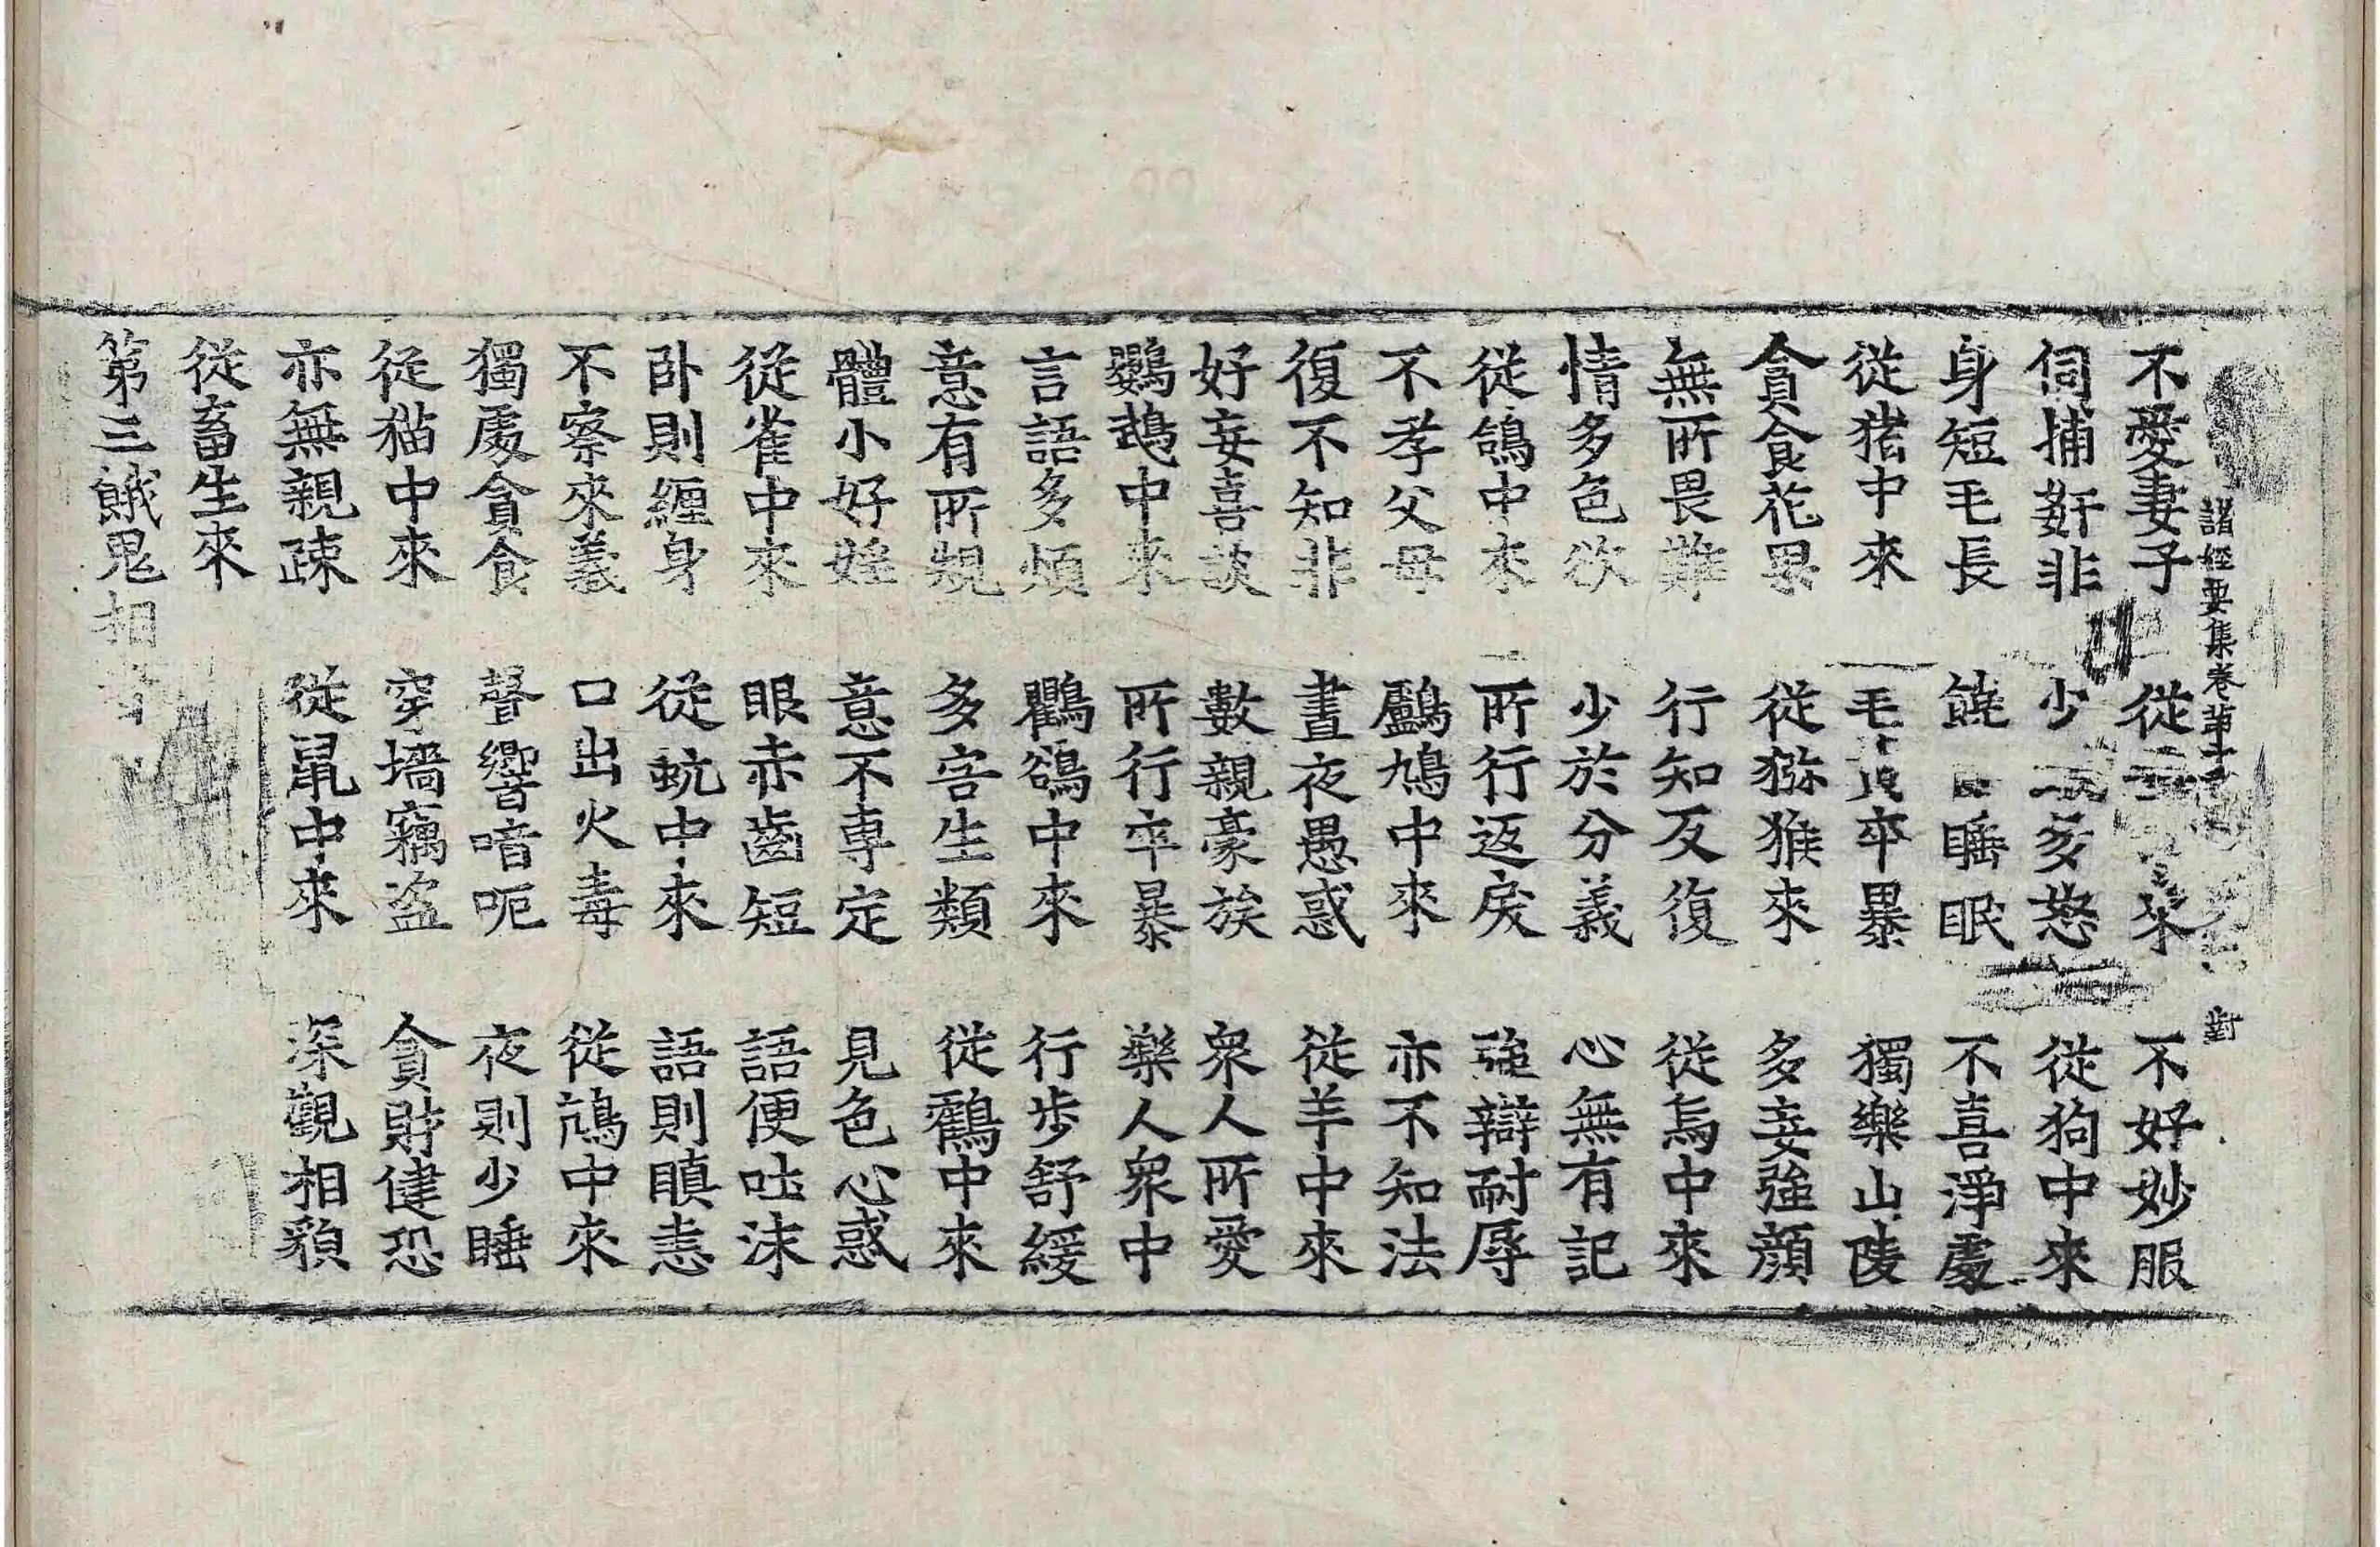 諸經要集卷第十
不愛妻子 從 來 不好妙服
伺捕姧非 少 多怒 從狗中來
身短毛長 饒 睡眠 不喜淨處
從猪中來 毛 卒暴 獨樂山陵
貪食花果 從猕猴來 多妄強顔
無所畏難 行知反復 從烏中來
情多色欲 少於分義 心無有記
從鴿中來 所行返戾 強辯耐辱
不孝父母 鸕鳩中來 亦不知法
復不知非 晝夜愚惑 從羊中來
好妄喜談 數親豪族 衆人所愛
鸚鵡中來 所行卒暴 樂人衆中
言語多煩 鸜鵒中來 行步舒緩
意有所規 多害生類 從鸖中來
體小好婬 意不専定 見色心惑
從雀中來 眼赤齒短 語便吐沫
卧則纏身 從蚖中來 語則瞋恚
不察來義 口出火毒 從鴆中來
獨處貪食 聲響喑呃 夜則少睡
從猫中來 穿墻竊盗 貪財健恐
亦無親疎 從鼠中來 深觀相貌
從畜生來
第三餓鬼相